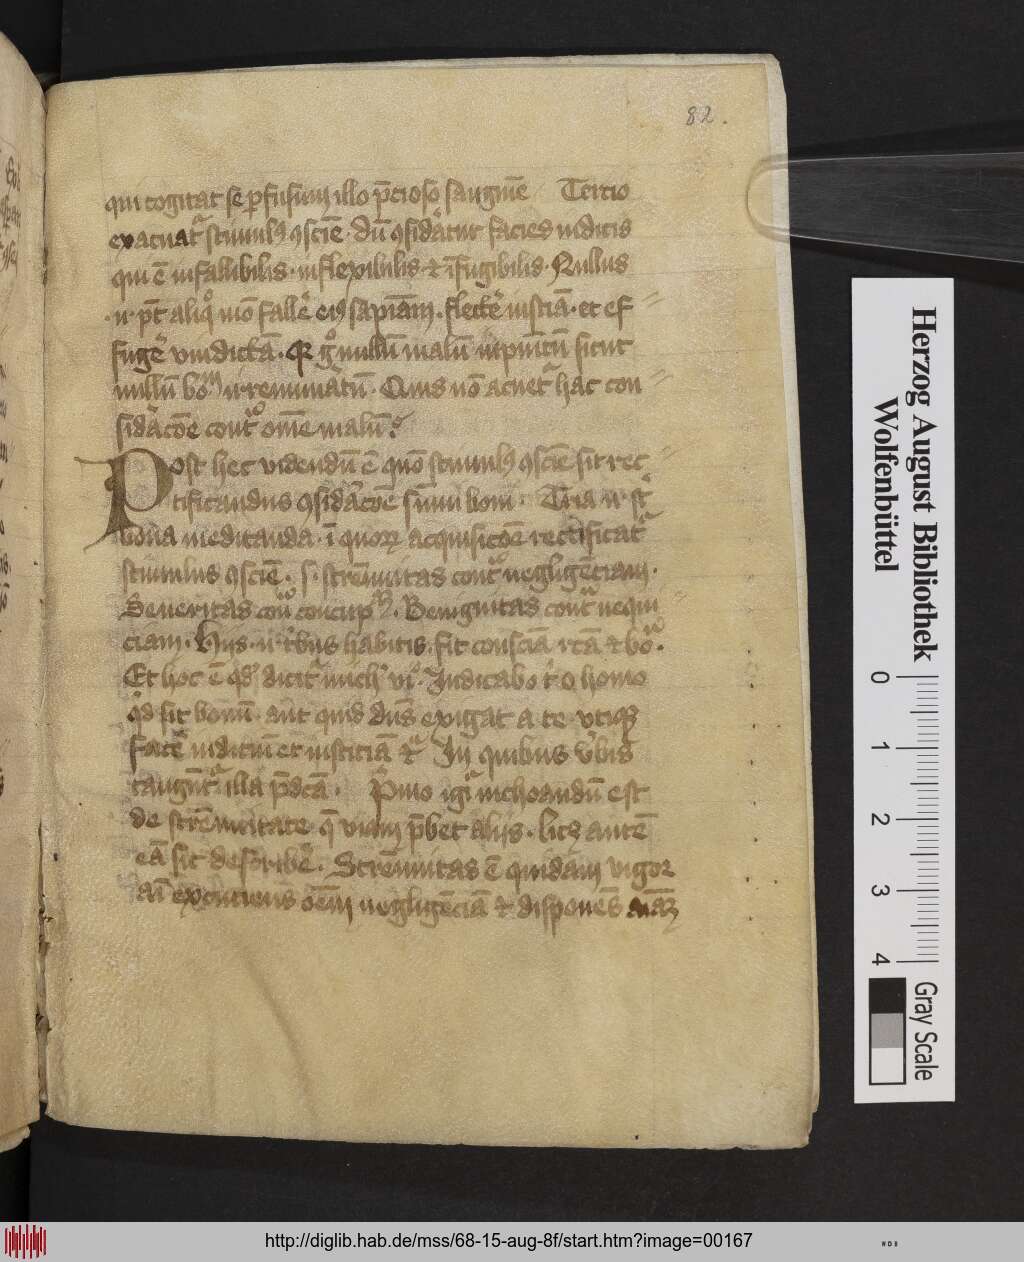 82.
qui cogitat se ꝑfusum illo p̄cioso sanguīe Tercio
exacuat᷑ stimulꝰ ꝯsciē · dū ꝯsidat᷑ur facies iudicis
qui ē infallibilis · inflexibilis · ⁊ īfugibilis · Nullus
·n· pt̄ aliqͦ mō fallē eiꝰ sapiām · flectē iusciā · et ef
fugē vindictā · Qr gͦ nullū malū īpunitū sicut
nullū boᵐ irremunatū · Quis nō acuet᷑ hac con
sidacōe contᵃ om̄e malū ·
Post hec videndū ē quō stimulꝰ ꝯsciē sit rec
tificandus ꝯsidacōe sum̄i boni · Tria ·n· st̄
bona meditanda · ī quoꝝ acquisicōe rectificat᷑
stimulus ꝯsciē · s · strēnuitas contᵃ negligēciam ·
Seueritas conᵃ concupᵃᵐ · Benignitas contᵃ nequi
ciam · Hijs ·n· tⁱbus habitis · fit consciā rcā ⁊ boᵃ ·
Et hoc ē qd̄ dicit᷑ mich̄ vi° · Indicabo tⁱ o homo
qͥd sit bonū · aut quid dn̄s exigat a te · vtiqꝫ
facē iudiciū et iusticiā ⁊c̄ In quibus v̄bis
tangūt᷑ illa p̄dcā · Pⁱmo igⁱ inchoandū est
de strēnuitate · q̄ viam p̄bet alijs · licꝫ autē
eā sic describē · Strēnuitas ē quidam vigor
ai excuciens oēm negligēciā ⁊ disponēs aīaꝝ
Herzog August Bibliothek
Wolfenbüttel
0 1 2 3 4
Gray Scale
http://diglib.hab.de/mss/68-15-aug-8f/start.htm?image=00167